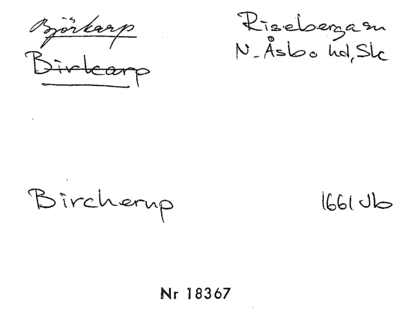 Björkarp Riseberga sn
Birkarp N. Åsbo hd, Sk
Bircherup 1661 Jb
Nr 18367